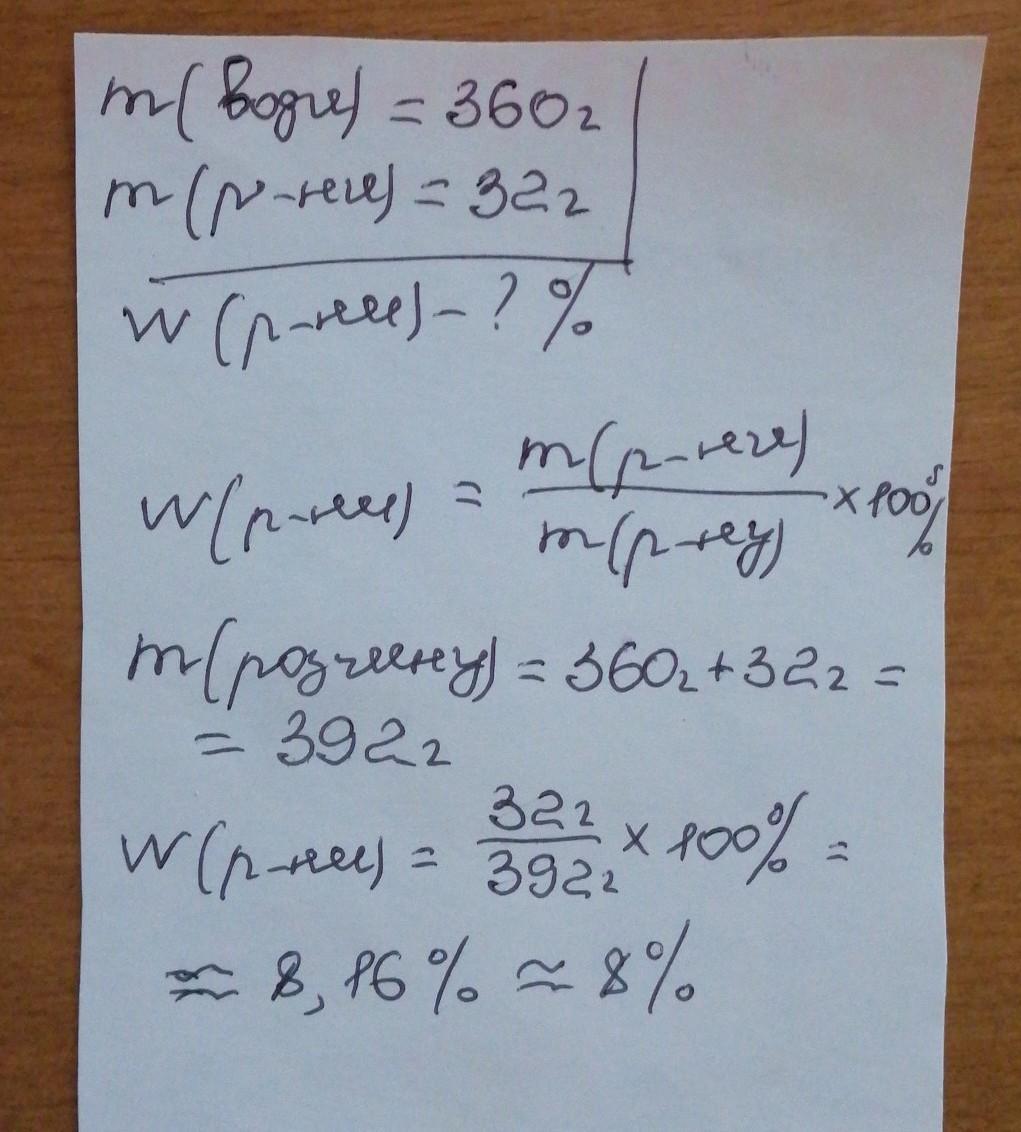 m(води) = 360г
m(р-ни) = 32г
w(р-ни) - ? %
w(р-ни) = m(р-ни) / m(р-ну) × 100%
m(розчину) = 360г + 32г =
= 392г
w(р-ни) = 32г / 392г × 100% =
≈ 8,16% ≈ 8%